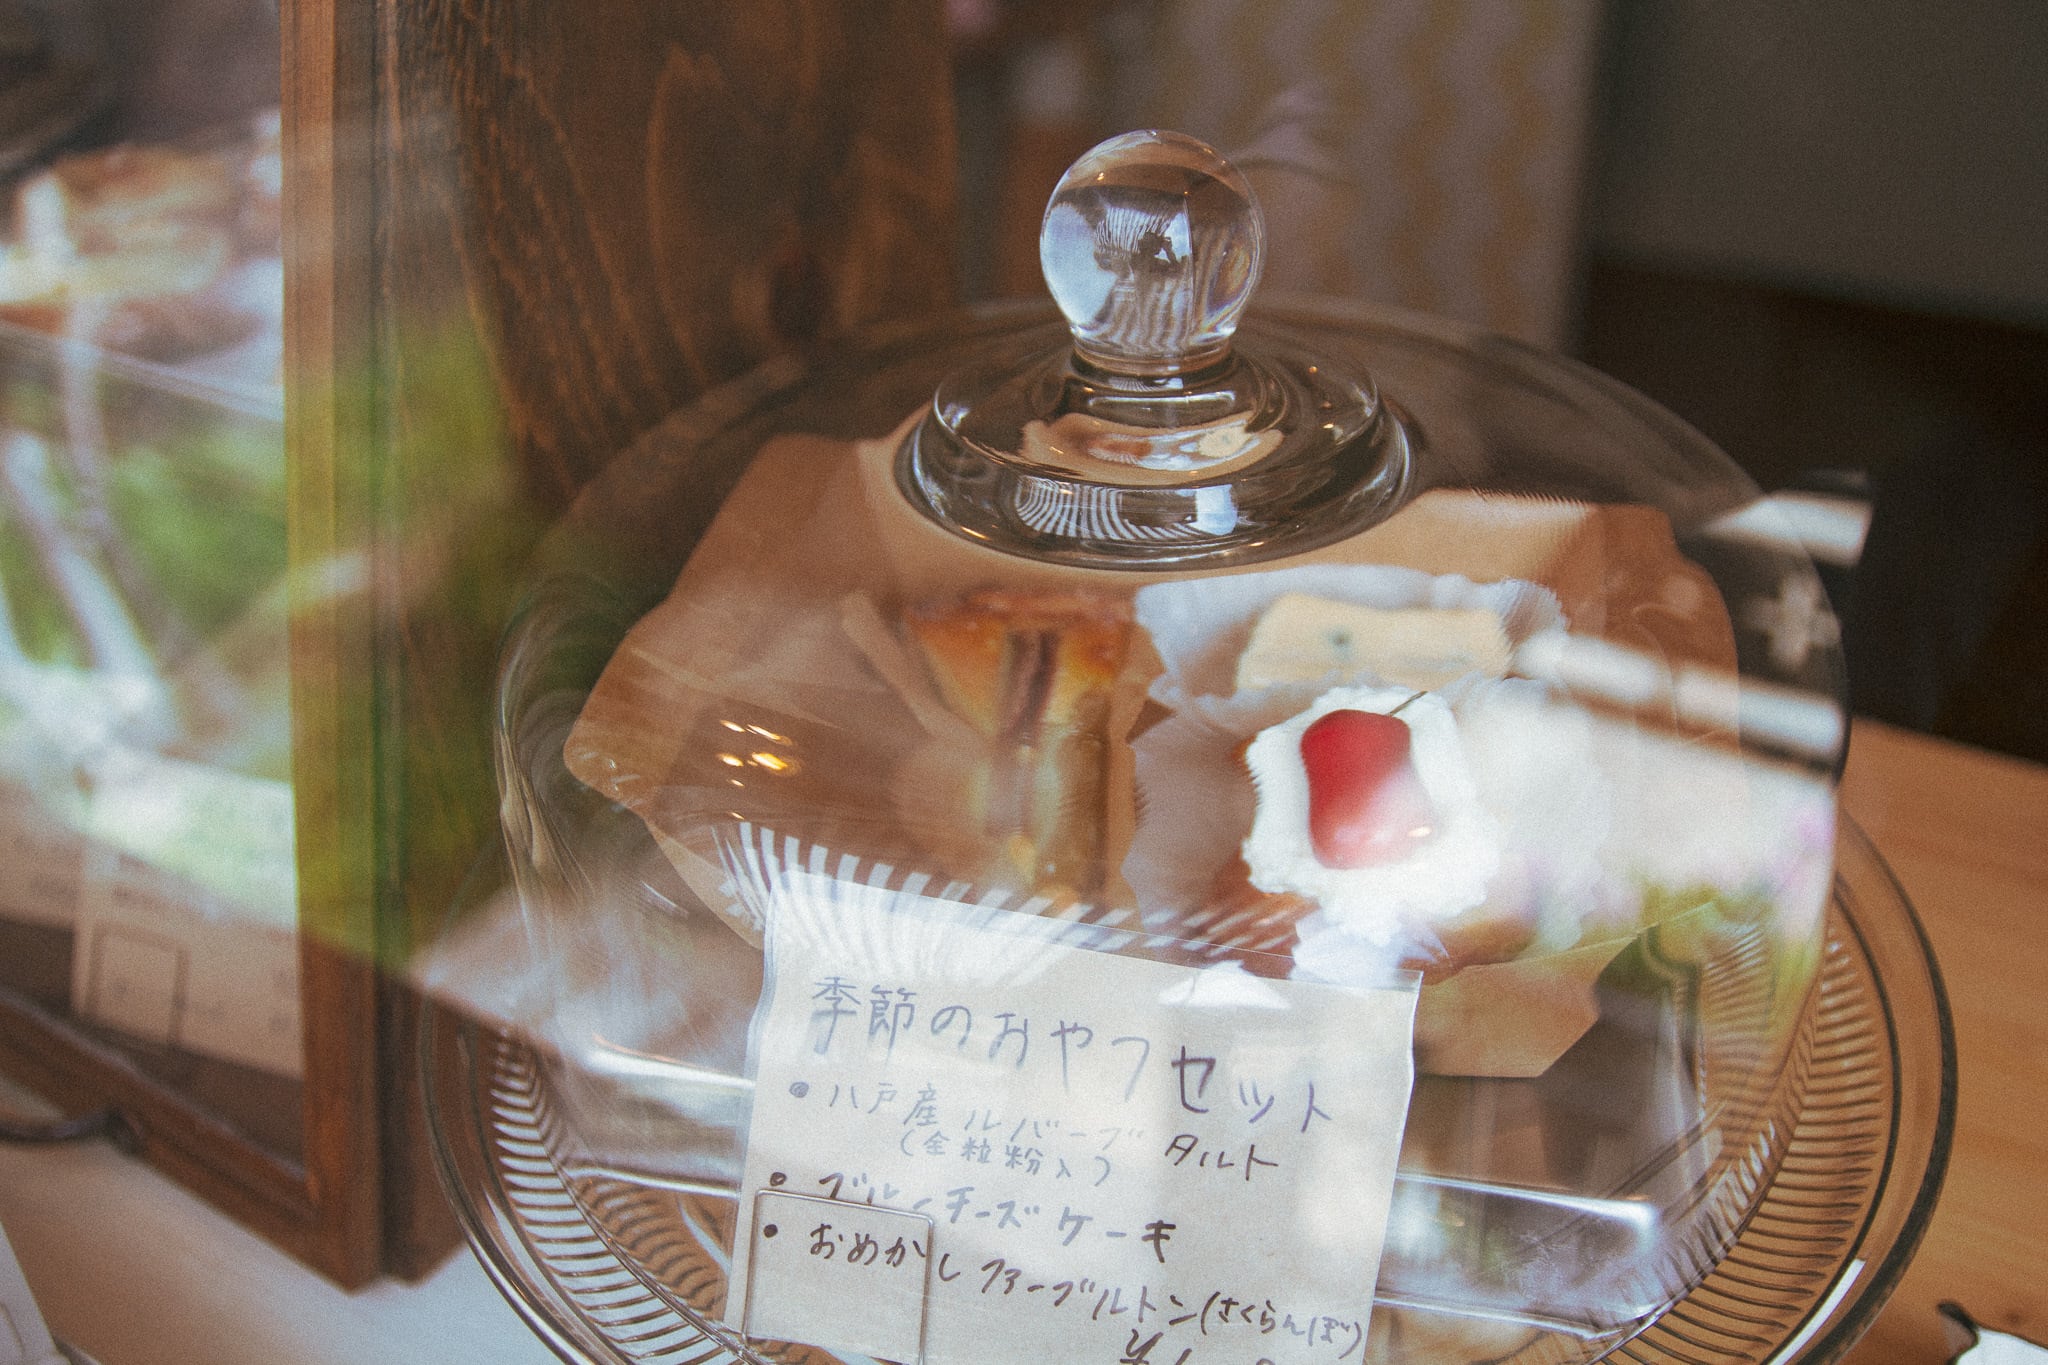 季節のおやつセット
• 八戸産ルバーブタルト
(全粒粉入)
• ブルーチーズケーキ
• おめかしファーブルトン(さくらんぼ)
¥1